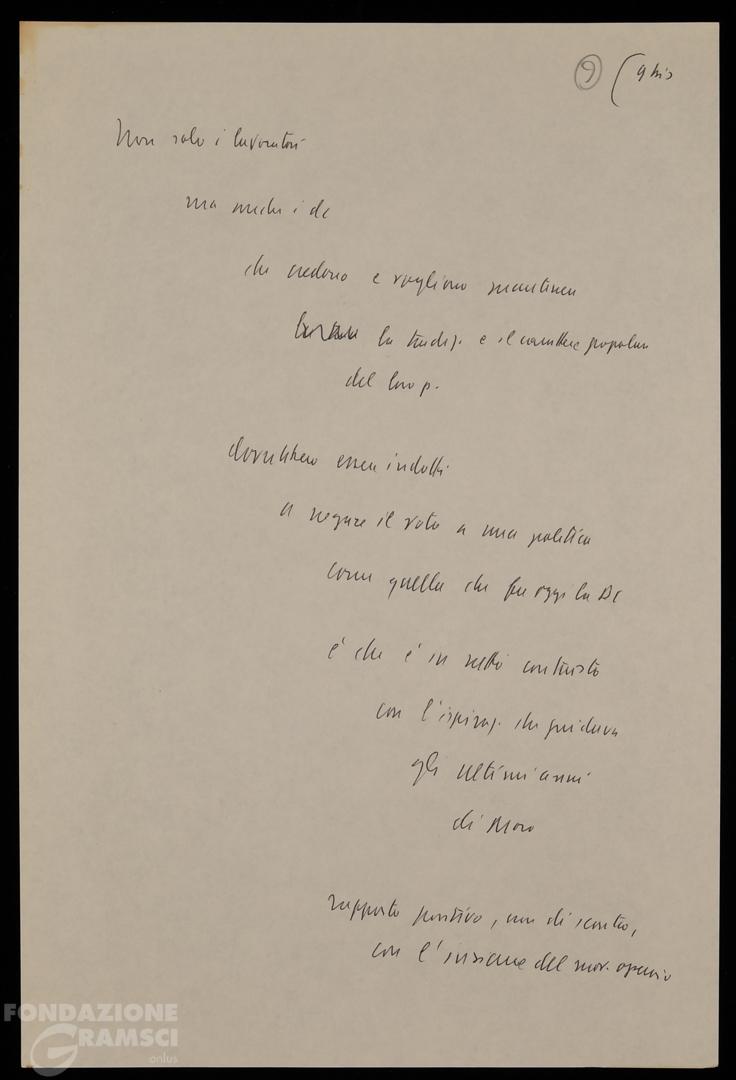 9 (9 bis
Non solo i lavoratori
ma anche i dc
che credono e vogliono mantenere
la tradiz. e il carattere popolare
del loro p.
dovrebbero essere indotti
a negare il voto a una politica
come quella che fa oggi la DC
e che è in netto contrasto
con l'ispiraz. che guidava
gli ultimi anni
di Moro
rapporto positivo, non di scontro,
con l'insieme del mov. operaio
FONDAZIONE
GRAMSCI
onlus